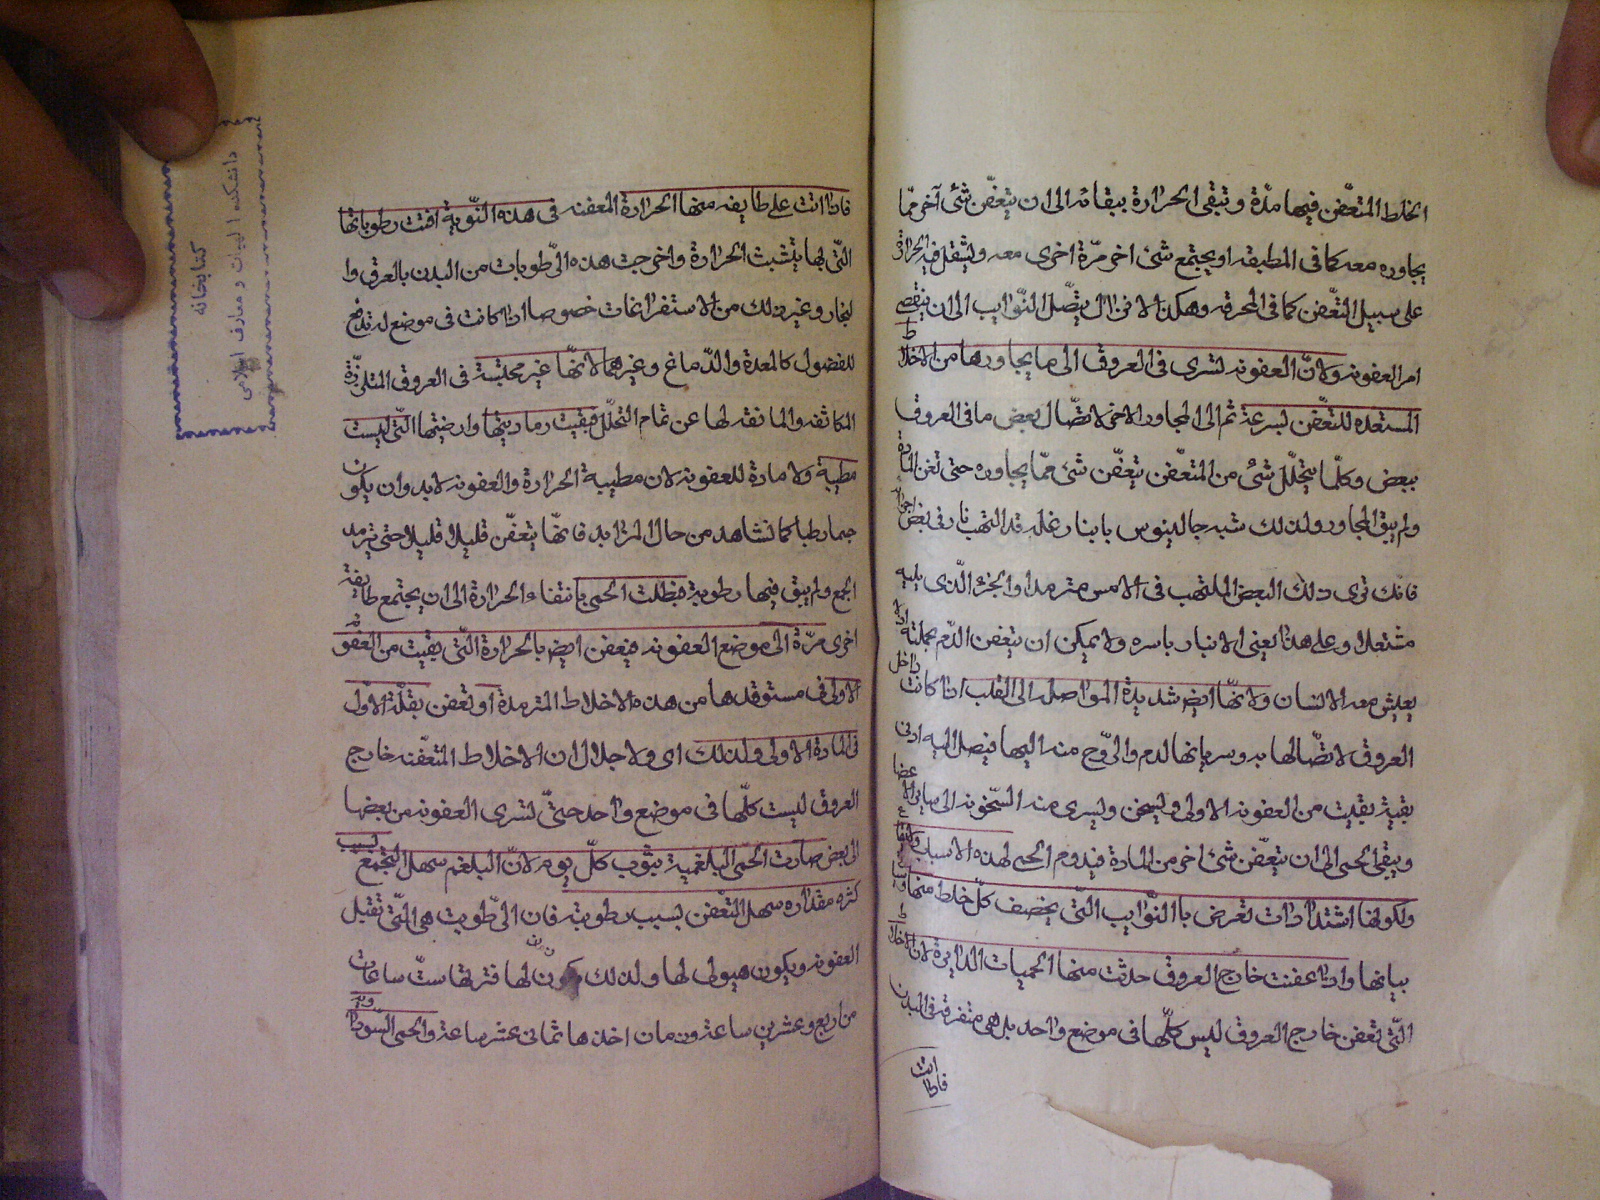 الخلط المتعفّن فيها مدّة و تبقى الحرارة ببقائه الى ان يتعفّن شئ آخر ممّا
يجاوره معه كما فى المطبقه او يجتمع شئ اخر مرّة اخرى معه و يشتعل فيه الحرارة
على سبيل التعّفن كما فى المحرقه وهكذا لا تزال يتصّل النّوايب الى ان ينقص
امر العفونه ولانّ العفونه تسرى فى العروق الى ما يجاورها من الاخلاط
المستعده للتعّفن بسرعة ثم الى المجاور الاخر لاتصّال بعض ما فى العروق
ببعض وكلّما يتحلّل شئ من المتعّفن تعفّن شئ ممّا يجاوره حتى تفنى المادة
ولم يبق المجاور ولذلك شبه جالينوس بانبار غله قد التهب نار فى بعض اجزائه
فانك ترى ذلك البعض الملتهب فى الامس مترمدا والجزء الّذى يليه
مشتعلا و على هذا يفنى الانبار باسره ولا يمكن ان يتعفن الدّم بجملته اذ لا
يعيش معه الانسان ولانّها ايض شديدة المواصله الى القلب اذا كانت داخل
العروق لاتصّالها به وسريانها لدم والرّوح منه اليها فيصل اليه ادنى
بقية بقيت من العفونه الاولى ويسخن ويسرى منه السّخونه الى ساير الاعضا
ويبقى الحمى الى ان يتعّفن شئ اخر من المادة فيدوم الحمى لهذه الاسباب
ولكو لها اشتدادات تعرض باالنّوايب التّى يخصف كلّ خلط منها
بيانها واذا عفنت خارج العروق حدثت منها الحميات الدايرة لان الاخلاط
التّى تعفن خارج العروق ليس كلّها فى موضع واحد بل هى متفرقة فى البدن
فاذا اتت
فاذا اتت على طايفه منها الحرارة المعفنه فى هذه النّوبة افنت رطوباتها
التّى بها يتشبث الحرارة واخرجت هذه الرّطوبات من البدن بالعرق وا
لبخار وغير ذلك من الاستفراغات خصوصا اذا كانت فى موضع له تدفع
للفضول كالمعدة والدّماغ وغيرهما لانّها غير محتبسة فى العروق المتلزّزة
المكاثفه والمانعه لها عن تمام التحلّل فبقيت رماديتها وارضيتها التّى ليست
مطية ولا مادة للعفونه لان مطيبة الحرارة والعفونه لابد وان يكون
جسما رطبا كما نشاهد من حال المزابد فانّها يتعفّن قليلا قليلا حتى يترمد
الجمع ولم يبق فيها رطوبة فبطلت الحمى بانتفاء الحرارة الى ان يجتمع طايفة
اخرى مرّة الى موضع العفونه فيعفن ايض بالحرارة التّى بقيت من العفونة
الاولى فى مستوقدها من هذه الاخلاط المترمدة او تعفن بقلّة الاول
فى المادة الاولى ولذلك اى ولاجل ان الاخلاط المتعّفنه خارج
العروق ليست كلّها فى موضع واحد حتىّ تسرى العفونه من بعضها
الى بعض صارت الحمّى البلغمية تنوب كلّ يوم لانّ البلغم سهل التجمع بسبب
كثرة مقداره سهل التعّفن بسبب رطوبته فان الرّطوبت هى التّى تقبل
العفونه ويكون هيولى لها ولذلك يكون لها فترتها ستّ ساعات
من اربع وعشرين ساعة وزمان اخذها ثمانى عشر ساعة والحمى السّوداوية
كتابخانه
دانشكده الهيات و معارف اسلامى